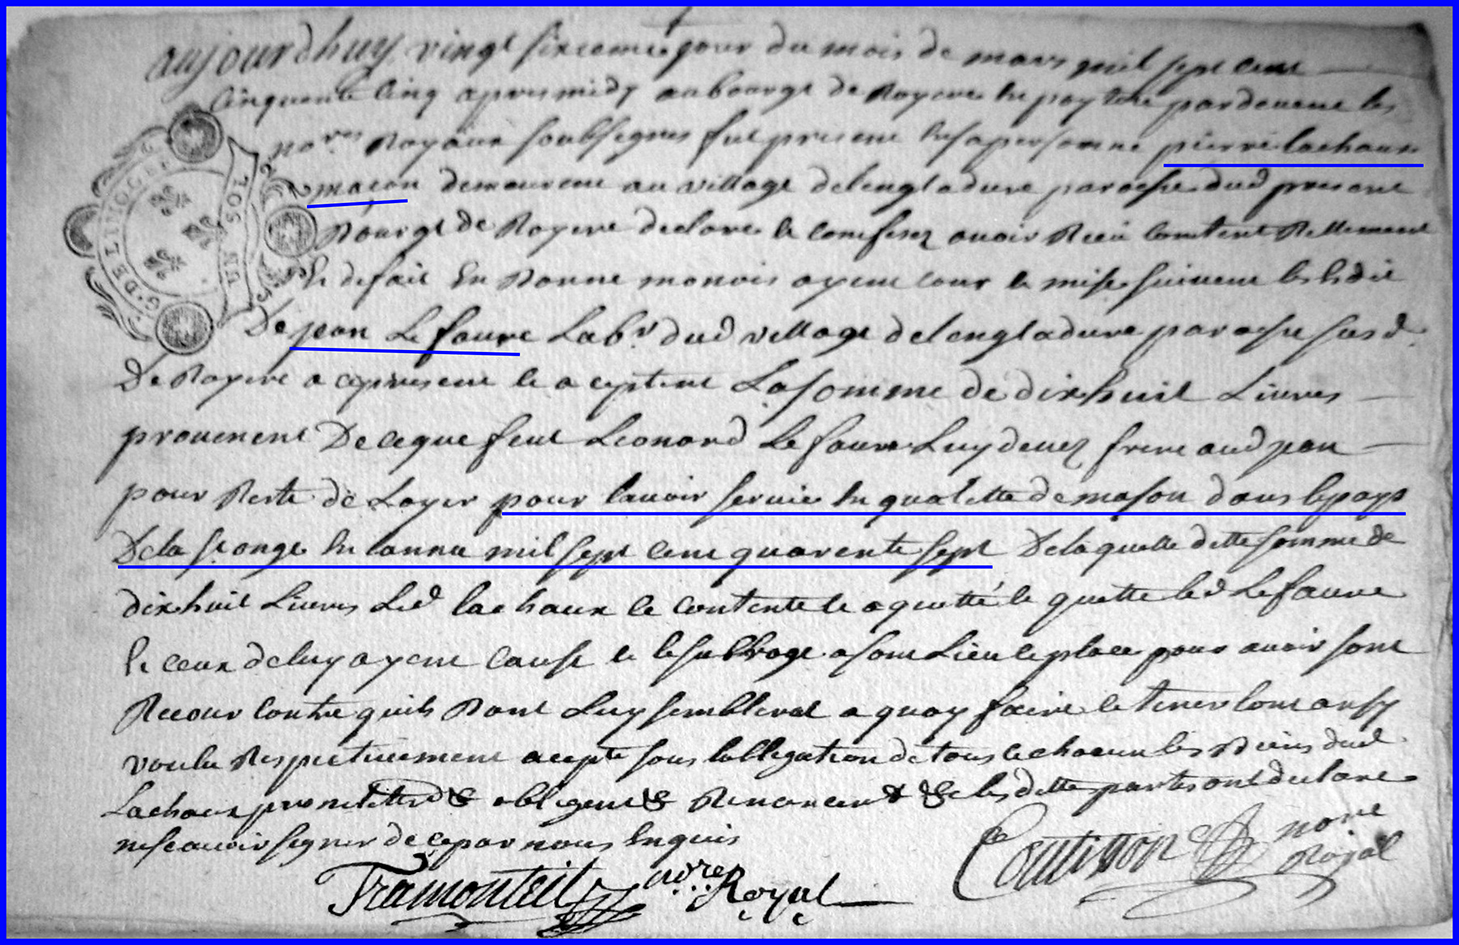 aujourdhuy vingt sixieme jour du mois de mars mil sept cent
Cinquante Cinq apres midy au bourgt de Royere en poytou pardevent les
nores Royaux soubsignes fut present en sa personne pierre lachaux
macon demeurent au village de lengladure paroisse dud present
Bourgt de Royere declare et confesse avoir Receu content Rellement
et de fait En Bonne monoie ayent cour et mise suivent les
G. DE LIMOGES
UN SOL
De jean Lefaure Labr dud village de lengladure paroisse susd.
De Royere a ce present et aceptent La somme de dixhuit Livres
provenent De ce que feut Leonard Lefaure Luy devez frere aud jean
pour Reste de Loyer pour lavoir servie en qualitte de mason dans le pays
De la st onge En lanne mil sept cent quarente sept De laquelle ditte somme de
dixhuit Livres Led lachaux se contente et a quitté et quitte led Lefaure
et ceux de luy ayent cause et le subroge a son Lieu et place pour avoir sont
Recour contre quils Bont Luy semblerat a quoy faire et tenir tout ansy
voulu Respectivement acepte sous lobligation de tous et chacun les Biens dud
Lachaux promettent & obligent & Renoncent & & les ditte parties ont declare
ne scavoir signer de ce par nous Enquis
Tramonteil nore Royal
Coutisson nore Royal